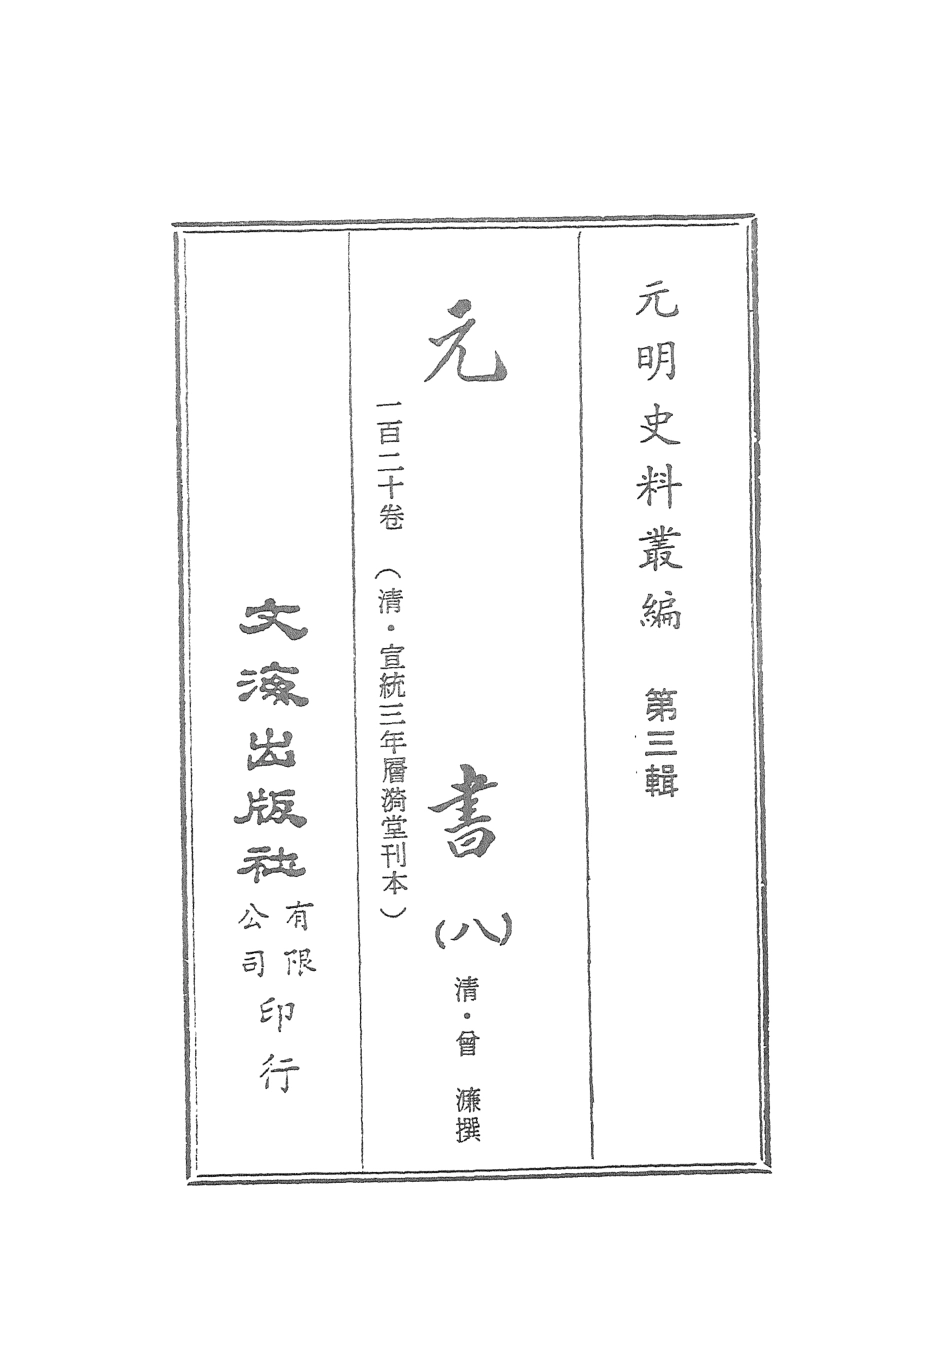 元明史料叢編　第三輯
元書(八)　清・曾　濂撰
一百二十卷　（清・宣統三年層漪堂刊本）
文海出版社有限公司印行